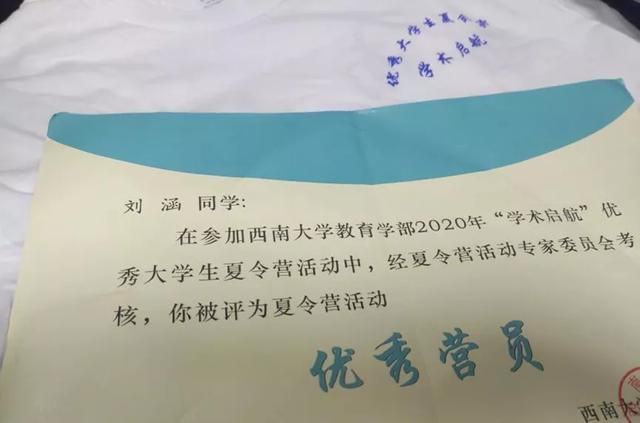 优秀大学生夏
学术启航
刘涵同学:
在参加西南大学教育学部2020年“学术启航”优
秀大学生夏令营活动中，经夏令营活动专家委员会考
核，你被评为夏令营活动
优秀营员
西南大